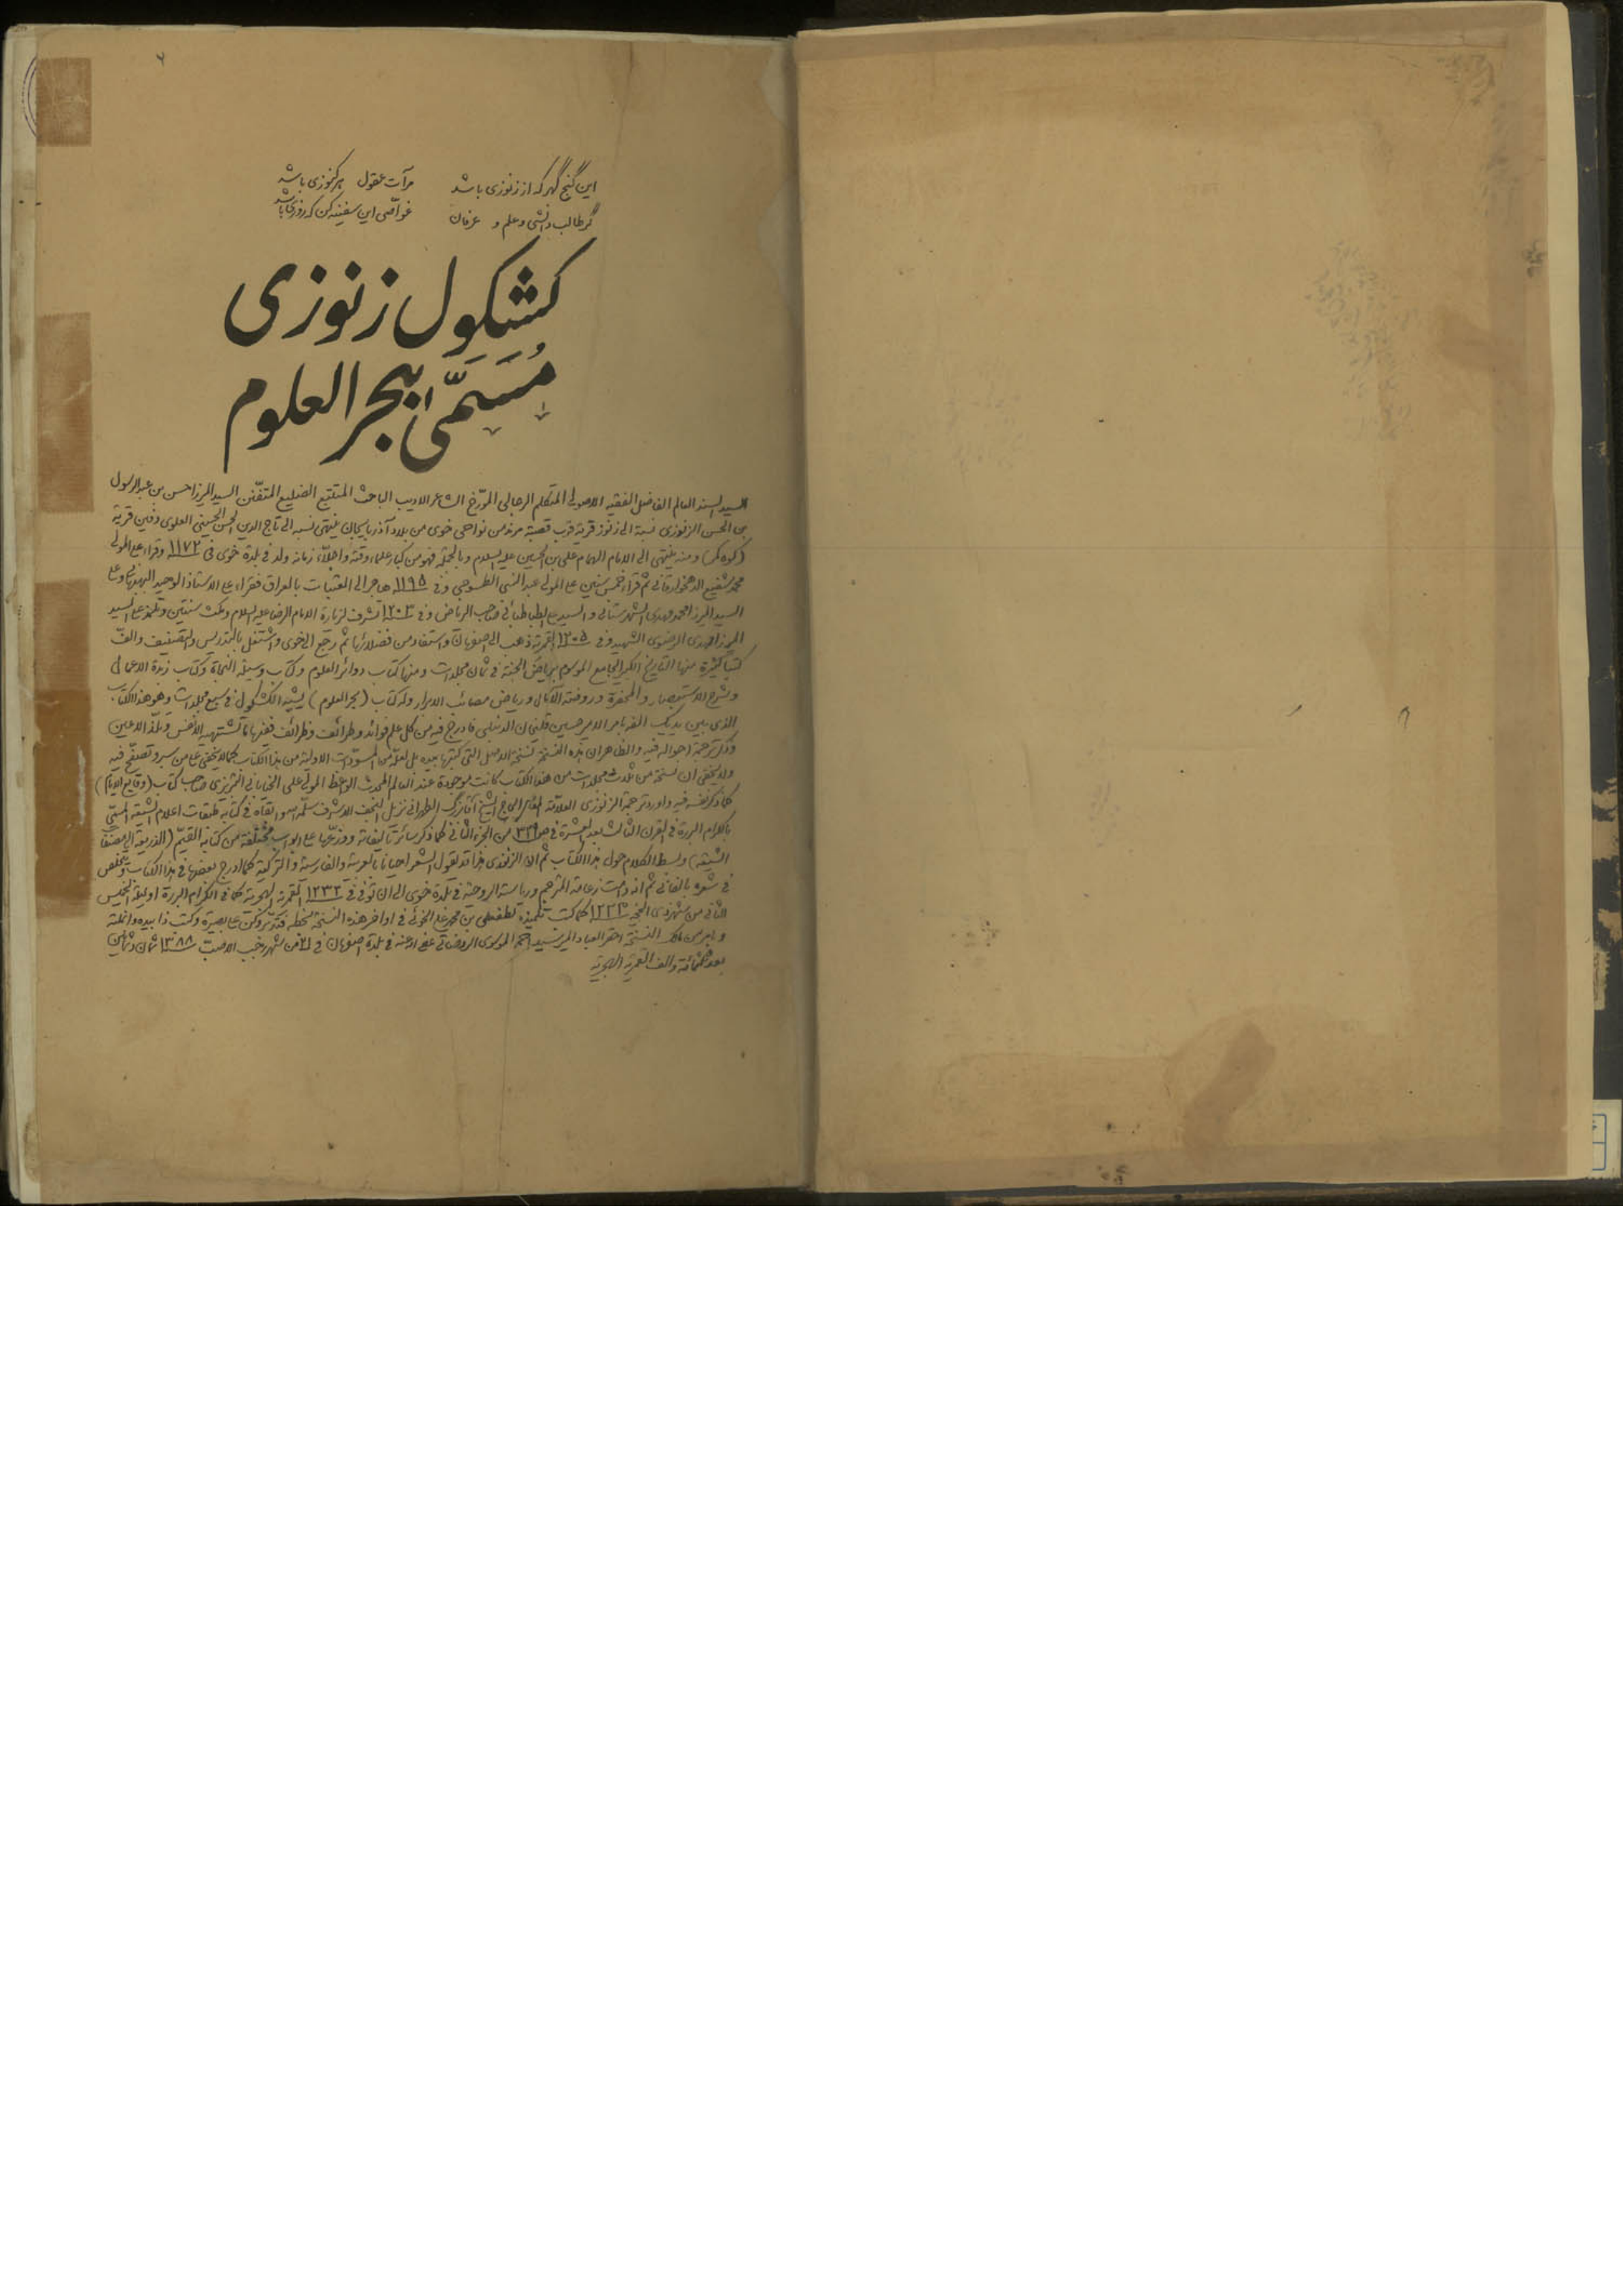 ۲
این گنج گهر که از زنوزی باشد مرآت عقول هر کنوزی باشد
گر طالب دانشی و علم و عرفان غواصی این سفینه کن که روزی باشد
کشکول زنوزی
مُسَمّیٰ ببحر العلوم
السید السند العالم الفاضل الفقیه الاصولی المتکلم الرجالی المورّخ الشاعر الادیب الباحث المتتبع الضلیع المتفنّن السید المیرزا حسن بن عبدالرسول
بن الحسن الزنوزی نسبة الی زنوز قریة قرب قصبة مرند من نواحی خوی من بلاد آذربایجان ینتهی نسبه الی تاج الدین الحسن الحسینی العلوی دفین قریة
(کوه کمر) ومنه ینتهی الی الامام الهمام علی بن الحسین علیه السلام وبالجملة فهو من کبار علماء وقته واجلّاء زمانه ولد فی بلدة خوی فی ۱۱۷۲ وقراء علی المولی
محمد شفیع الدهخوارقانی ثم قراء خمس سنین علی المولی عبدالنبی الطسوجی وفی ۱۱۹۵ هاجر الی العتبات بالعراق فقراء علی الاستاذ الوحید البهبهانی وعلی
السید المیرزا محمد مهدی الشهرستانی والسید علی الطباطبائی صاحب الریاض وفی ۱۲۰۳ تشرف لزیارة الامام الرضا علیه السلام ومکث سنتین وتلمذ علی السید
المیرزا مهدی الرضوی الشهید وفی ۱۲۰۵ القمریة ذهب الی اصفهان واستفاد من فضلائها ثم رجع الی خوی واشتغل بالتدریس والتصنیف والف
کتباً کثیرة منها التاریخ الکبیر الجامع الموسوم بریاض الجنة فی ثمان مجلدات ومنها کتاب دوائر العلوم وکتاب وسیلة النجاة وکتاب زبدة الاعمال
وشرح الاستبصار و وروضة الآمال وریاض مصائب الابرار وله کتاب (بحر العلوم) یشبه الکشکول فی سبع مجلدات وهو هذا الکتاب
الذی بین یدیک الفه بامر الامیر حسین قلیخان الدنبلی فادرج فیه من کل علم فوائد وطرائف وظرائف ففیها ما تشتهیه الانفس وتلذ الاعین
وذکر ترجمة احواله فیه والظاهر ان هذه النسخة نسخة الاصل التی کتبها بیده بل لعلّه من المسوّدات الاولیة من هذا الکتاب کما لا یخفی علی من سبر وتصفّح فیه
ولا یخفی ان نسخة من ثلاث مجلدات من هذا الکتاب کانت موجودة عند العالم المحدث الواعظ المولی علی الخیابانی التبریزی صاحب کتاب (وقایع الایام)
کما ذکر نفسه فیه واورد ترجمة الزنوزی العلاّمة الحاج الشیخ آقا بزرگ الطهرانی نزیل النجف الاشرف سلّمه الله وابقاه فی کتابه طبقات اعلام الشیعة المسمّی
بالکرام البررة فی القرن الثالث بعد العشرة فی ص ۳۳۱ من الجزء الثانی کما ذکر سائر تألیفاته ووزّعها علی ابواب مختلفة من کتابه القیّم (الذریعة الی تصنیف
الشیعة) وبسط الکلام حول هذا الکتاب ثم ان الزنوزی هذا قد یقول الشعر احیانا بالعربیة والفارسیة والترکیة کما ادرج بعضها فی هذا الکتاب ویتخلّص
فی شعره بالفانی ثم انه دامت زعامة المترجم وریاسته الروحیة فی بلدة خوی الی ان توفی فی ۱۲۳۲ القمریة الهجریة کما فی الکرام البررة او لیلة الخمیس
الثانی من شهر ذی الحجة ۱۲۲۳ کما کتب تلمیذه لطفعلی بن محمد علی الخوئی فی اواخر هذه النسخة بخطه فتدبّر وکن علی بصیرة وکتب ذا بیده وانملته
مالک النسخة احقر العباد المیر سید احمد الموسوی الروضاتی عفی عنه فی بلدة اصفهان فی ۲۱ من شهر رجب الاصبّ ۱۳۸۸ ثمان وثمانین
بعد ثلثمائة والف القمریة الهجریة